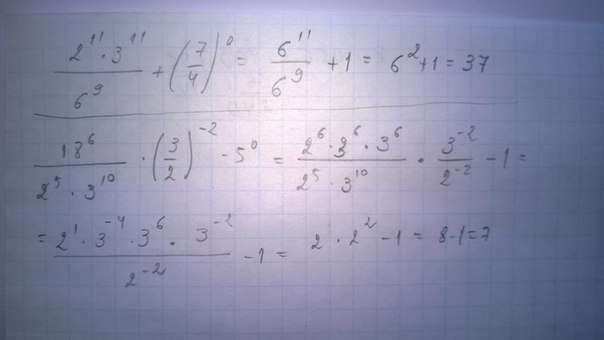 (2^11 · 3^11)/(6^9) + (7/4)^0 = (6^11)/(6^9) + 1 = 6^2 + 1 = 37
(18^6)/(2^5 · 3^10) · (3/2)^-2 - 5^0 = (2^6 · 3^6 · 3^6)/(2^5 · 3^10) · (3^-2)/(2^-2) - 1 =
= (2^1 · 3^-4 · 3^6 · 3^-2)/(2^-2) - 1 = 2 · 2^2 - 1 = 8-1=7